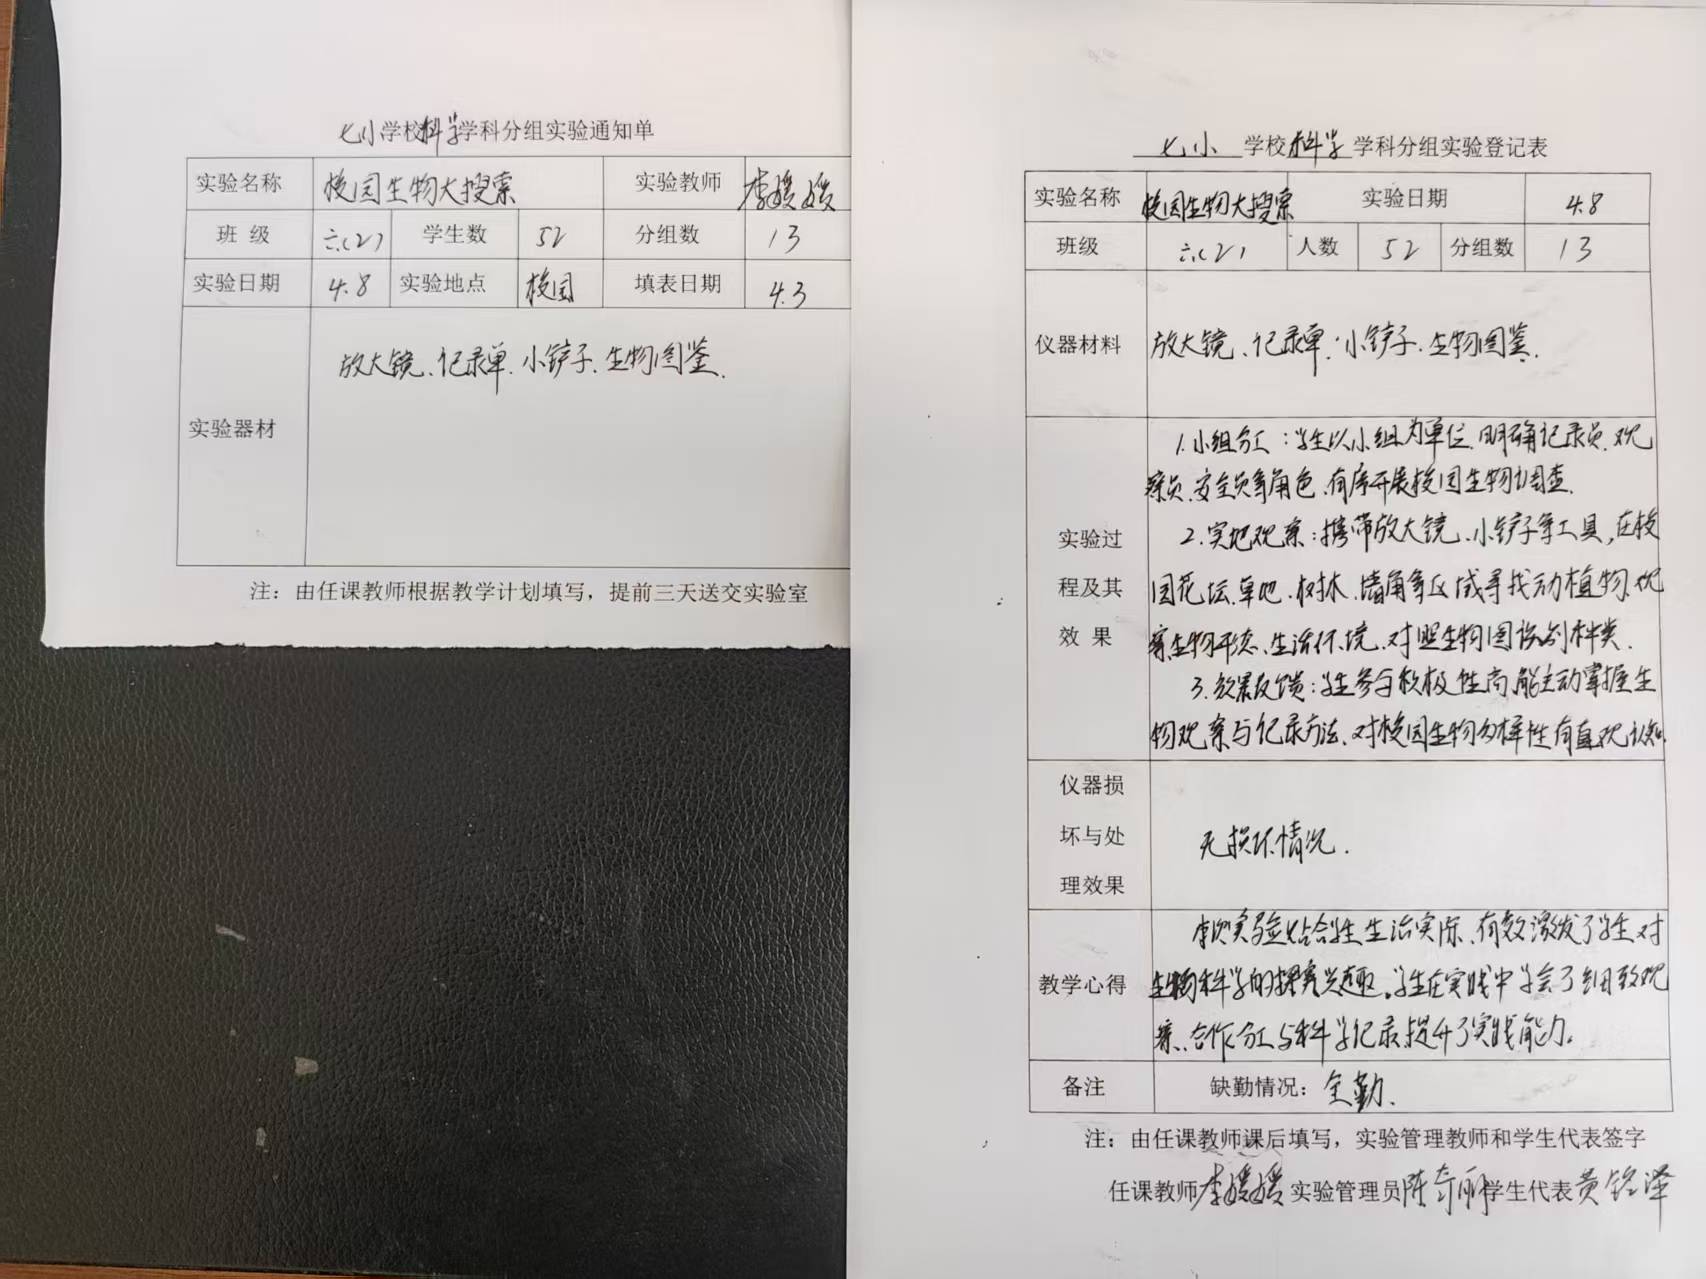 七小学校科学学科分组实验通知单
实验名称 校园生物大搜索 实验教师 李媛媛
班 级 六(2) 学生数 52 分组数 13
实验日期 4.8 实验地点 校园 填表日期 4.3
实验器材 放大镜、记录单.小铲子.生物图鉴.
注：由任课教师根据教学计划填写，提前三天送交实验室
七小 学校科学学科分组实验登记表
实验名称 校园生物大搜索 实验日期 4.8
班级 六(2) 人数 52 分组数 13
仪器材料 放大镜、记录单.小铲子.生物图鉴.
实验过程及其效 果
1.小组分工：学生以小组为单位.明确记录员.观
察员.安全员等角色.有序开展校园生物调查.
2.实地观察：携带放大镜、小铲子等工具,在校
园花坛.草地.树木.墙角等区域寻找动植物.观
察生物形态.生活环境.对照生物图识别种类.
3.效果反馈：学生参与积极性高.能主动掌握生
物观察与记录方法.对校园生物多样性有直观认知.
仪器损坏与处理效果 无损坏情况.
教学心得
本次实验结合学生生活实际.有效激发了学生对
生物科学的探究兴趣。学生在实践中学会了细致观
察.合作分工与科学记录.提升了实践能力。
备注 缺勤情况：全勤.
注：由任课教师课后填写，实验管理教师和学生代表签字
任课教师李媛媛实验管理员陈奇丽学生代表黄铭泽